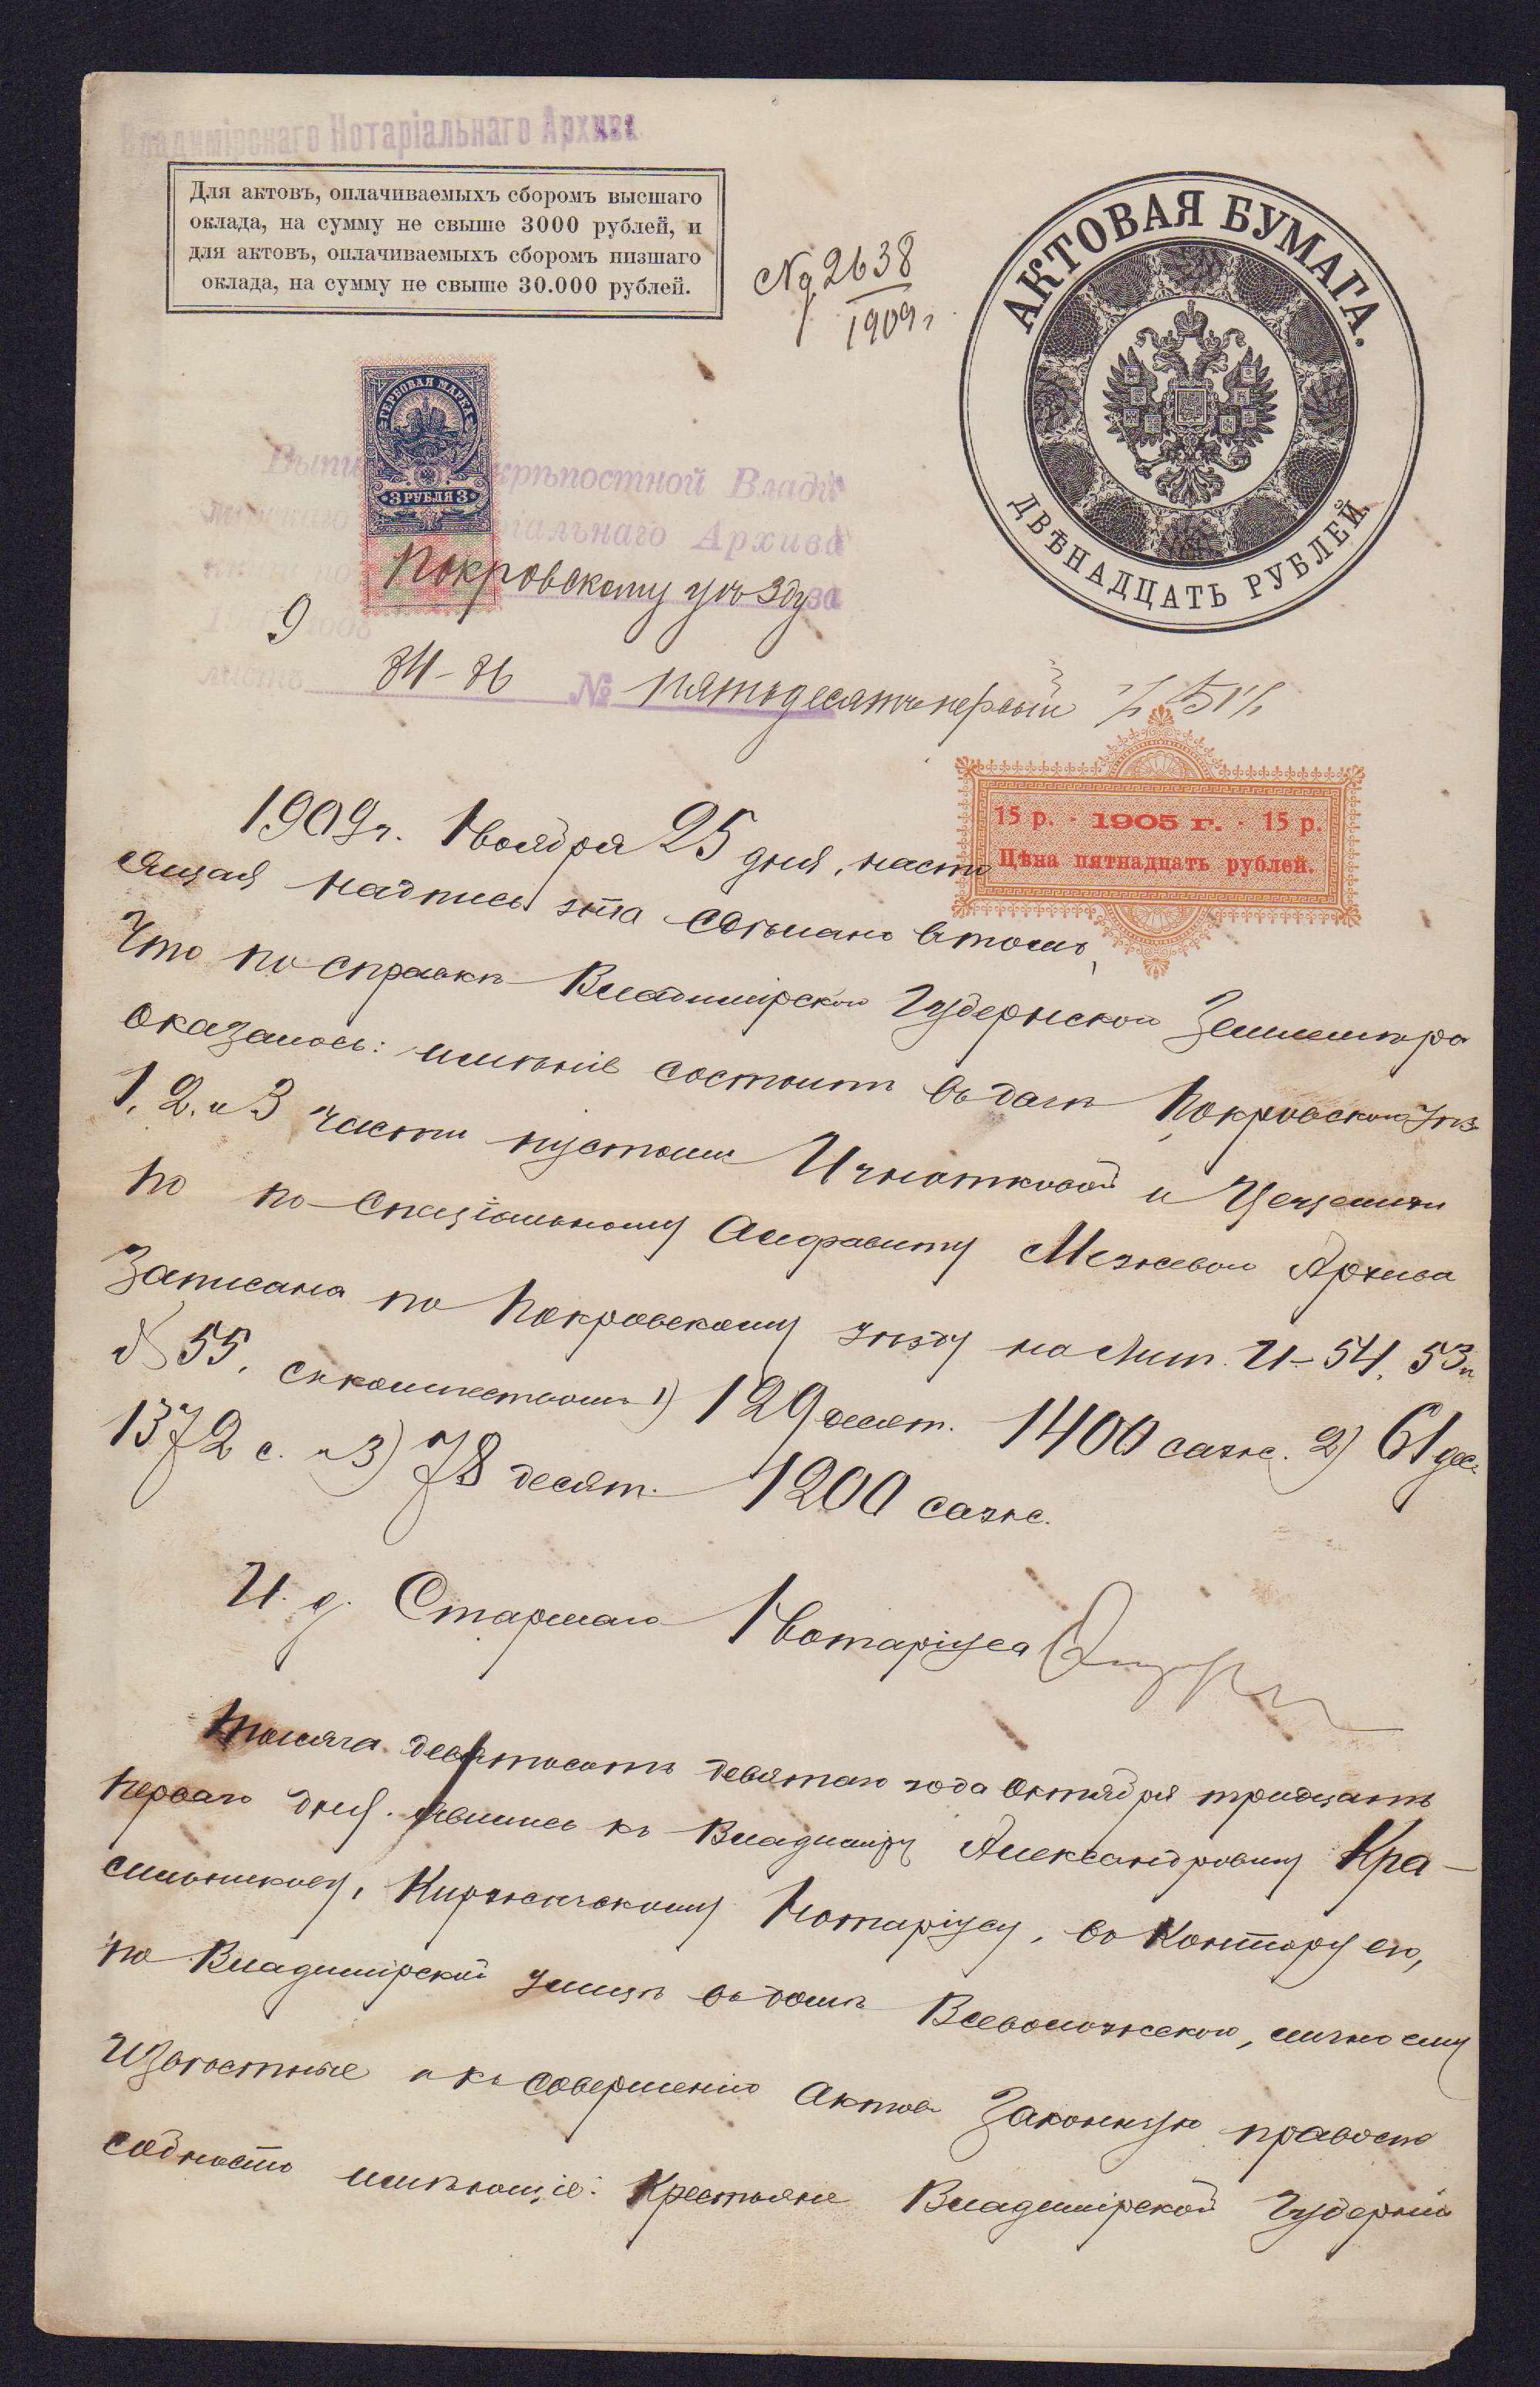 Владимірскаго Нотаріальнаго Архива
Для актовъ, оплачиваемыхъ сборомъ высшаго
оклада, на сумму не свыше 3000 рублей, и
для актовъ, оплачиваемыхъ сборомъ низшаго
оклада, на сумму не свыше 30.000 рублей.
№ 2638
1909 г.
АКТОВАЯ БУМАГА.
ДВѢНАДЦАТЬ РУБЛЕЙ.
ГЕРБОВАЯ МАРКА
3 РУБЛЯ 3
крѣпостной Влади
мірскаго Архива
Покровскому уѣзду за
9
листъ 84-86 № пятьдесятъ первый // 51 //
15 р. - 1905 г. - 15 р.
Цѣна пятнадцать рублей.
1909 г. Ноября 25 дня, насто
ящая надпись эта сдѣлана въ томъ,
что по справкѣ Владимірской Губернской Землемѣра
оказалось: имѣніе состоитъ въ дачѣ Покровскаго Уѣз
1, 2, и 3 части пустоши и
по Спеціальному Алфавиту Межеваго Архива
записана по Покровскому уѣзду на Лит. И-54, 53 и
№ 55, съ количествомъ 1) 129 десят. 1400 саж. 2) 61 дес.
1372 с. и 3) 78 десят. 1200 саж.
И. д. Старшаго Нотаріуса
Тысяча девятьсотъ девятаго года Октября тридцать
перваго дня, явились къ Владиміру Александровичу Кра-
сильникову, Киржачскому Нотаріусу, въ Контору его,
по Владимірской улицѣ въ домѣ Всеволожскаго, лично ему
извѣстные и къ совершенію актовъ законную правоспо
собность имѣющіе: Крестьяне Владимірской Губерніи